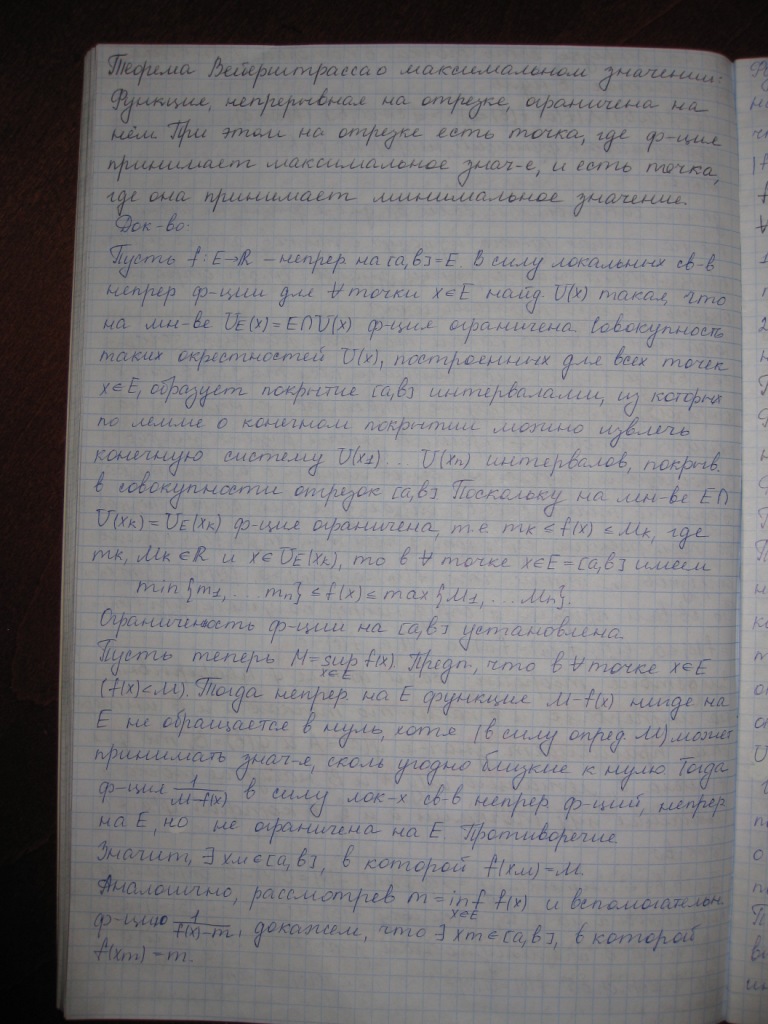 Теорема Вейерштрасса о максимальном значении:
Функция, непрерывная на отрезке, ограничена на
нём При этом на отрезке есть точка, где ф-ция
принимает максимальное знач-е, и есть точка,
где она принимает минимальное значение.
Док-во:
Пусть f: E→ℝ – непрер на [a,b]=E. В силу локальных св-в
непрер ф-ции для ∀ точки x∈E найд. U(x) такая, что
на мн-ве U_E(x)=E∩U(x) ф-ция ограничена. Совокупность
таких окрестностей U(x), построенных для всех точек
x∈E, образует покрытие [a,b] интервалами, из которых
по лемме о конечном покрытии можно извлечь
конечную систему U(x₁)... U(xₙ) интервалов, покрыв.
в совокупности отрезок [a,b] Поскольку на мн-ве E∩
U(xₖ)=U_E(xₖ) ф-ция ограничена, т.е. mₖ ≤ f(x) ≤ Mₖ, где
mₖ, Mₖ ∈ℝ и x∈U_E(xₖ), то в ∀ точке x∈E=[a,b] имеем
min {m₁, ... mₙ} ≤ f(x) ≤ max {M₁, ... Mₙ}.
Ограниченность ф-ции на [a,b] установлена.
Пусть теперь M = sup_{x∈E} f(x). Предп, что в ∀ точке x∈E
(f(x)<M). Тогда непрер. на E функция M-f(x) нигде на
E не обращается в нуль, хотя (в силу опред M) может
принимать знач-я, сколь угодно близкие к нулю. Тогда
ф-ция 1/(M-f(x)) в силу лок-х св-в непрер ф-ций, непрер.
на E, но не ограничена на E. Противоречие.
Значит, ∃ x_M∈[a,b], в которой f(x_M)=M.
Аналогично, рассмотрев m = inf_{x∈E} f(x) и вспомогательн.
ф-цию 1/(f(x)-m), докажем, что ∃ x_m∈[a,b], в которой
f(x_m)=m.